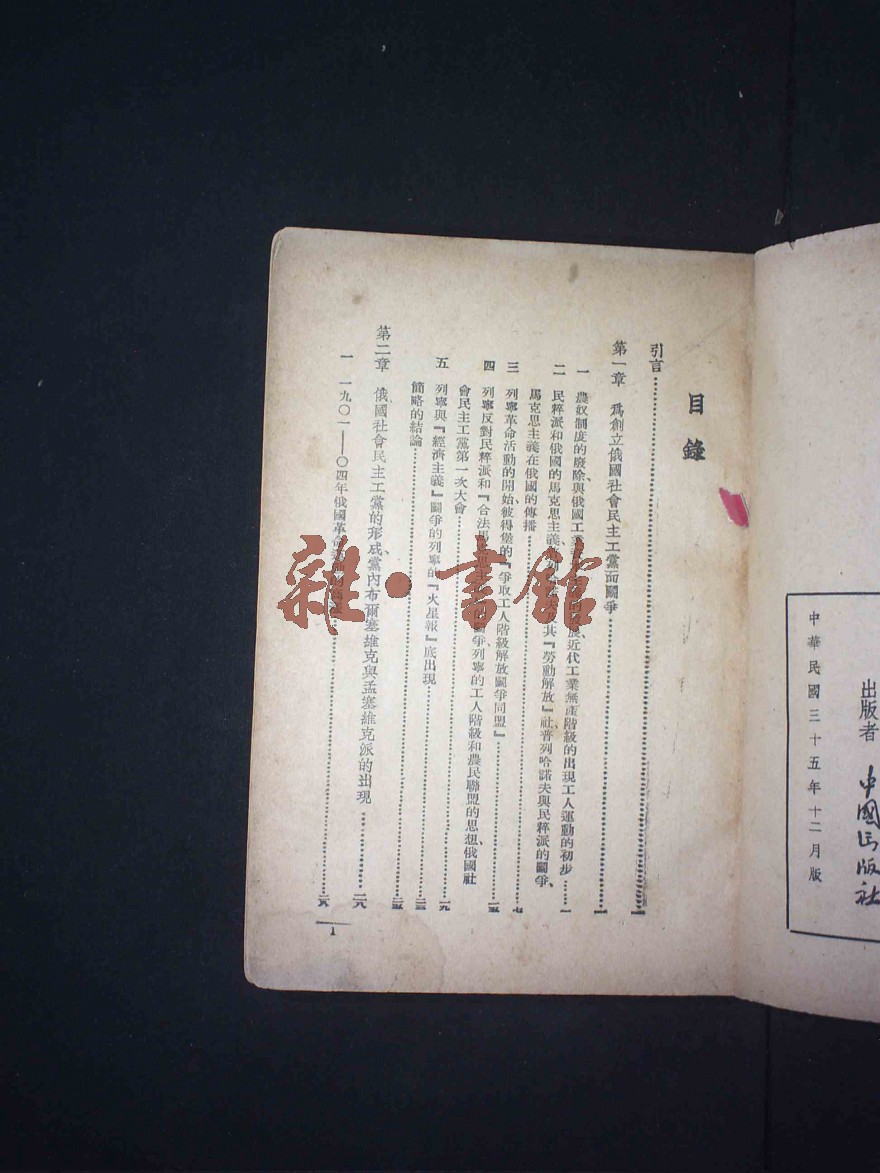 中華民國三十五年十二月版
出版者 中國出版社
目錄
引言…………一
第一章 爲創立俄國社會民主工黨而鬬爭…………一
一 農奴制度的廢除與俄國工業 近代工業無產階級的出現工人運動的初步…………一
二 民粹派和俄國的馬克思主義、 其『勞動解放』社普列哈諾夫與民粹派的鬬爭、
馬克思主義在俄國的傳播…………七
三 列寧革命活動的開始彼得堡的『爭取工人階級解放鬬爭同盟』…………一五
四 列寧反對民粹派和『合法馬克思主義 的鬬爭、列寧的工人階級和農民聯盟的思想、俄國社
會民主工黨第一次大會…………一九
五 列寧與『經濟主義』鬬爭的列寧的『火星報』底出現…………二三
簡略的結論…………
第二章 俄國社會民主工黨的形成、黨內布爾塞維克與孟塞維克派的出現…………二八
一 一九〇一——〇四年俄國革命…………二八
1
雜·書館